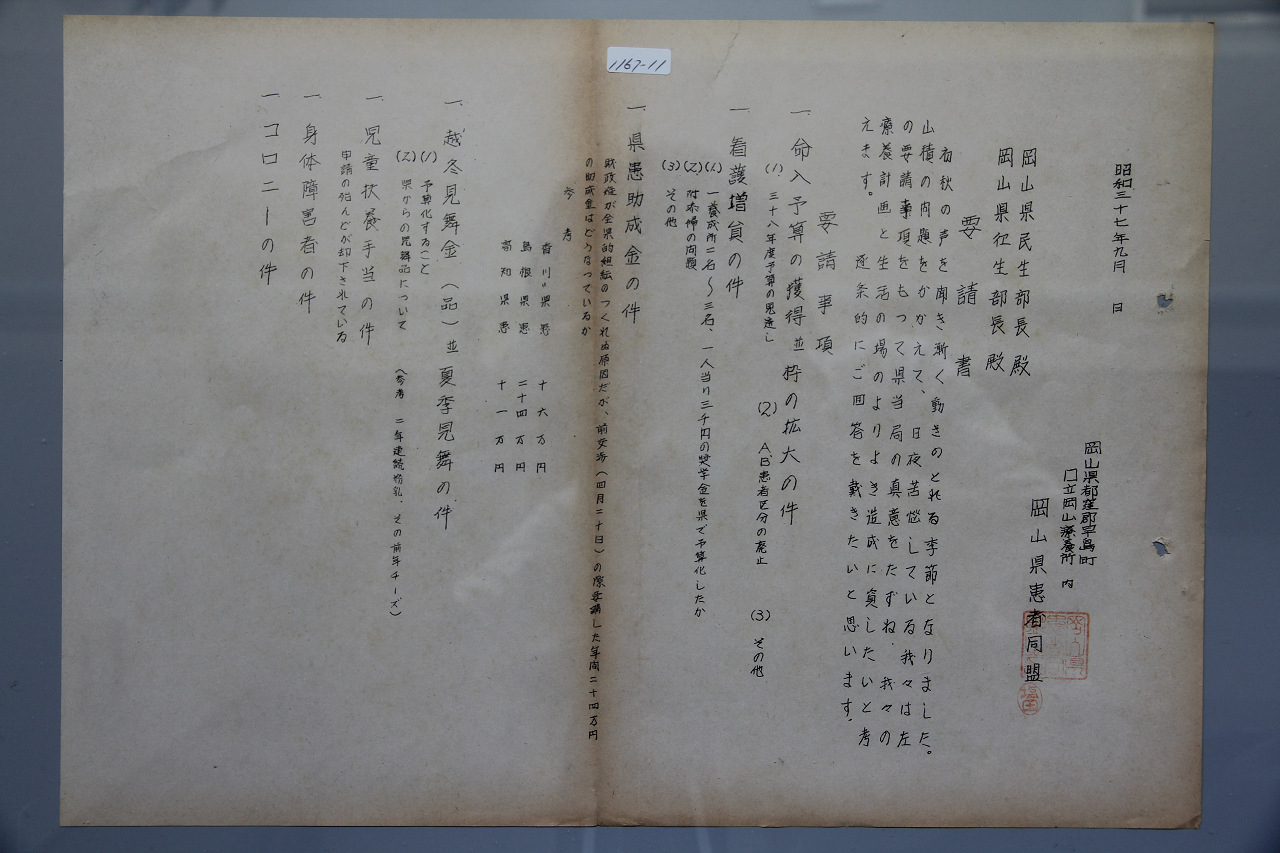 1167-11
昭和三十七年九月　日
岡山県都窪郡早島町
国立岡山療養所 内
岡山県患者同盟
岡山県民生部長 殿
岡山県衛生部長 殿
要請書
初秋の声を聞き漸く動きのとれる季節となりました。
山積の問題をかかえて、日夜苦悩している我々は左
の要請事項をもつて県当局の真意をたずね、我々の
療養計画と生活の場のよりよき造成に資したいと考
えます。　逐条的にご回答を戴きたいと思います。
要請事項
一、命入予算の獲得並枠の拡大の件
(1) 三十八年度予算の見透し　(2) A.B患者区分の廃止　(3) その他
一、看護増員の件
(1) 一養成所二名〜三名、一人当り三千円の奨学金を県で予算化したか
(2) 附添婦の問題
(3) その他
一、県患助成金の件
財政難が全県的組織のつくれぬ原因だが、前交渉(四月二十日)の際要請した年間二十四万円
の助成金はどうなつているか
参考
香川県患　十六万円
島根県患　二十四万円
高知県患　十一万円
一、越冬見舞金(品)並夏季見舞の件
(1) 予算化すること
(2) 県からの見舞品について　(参考　二年連続粉乳、その前年チーズ)
一、児童扶養手当の件
申請の殆んどが却下されている
一、身体障害者の件
一、コロニーの件